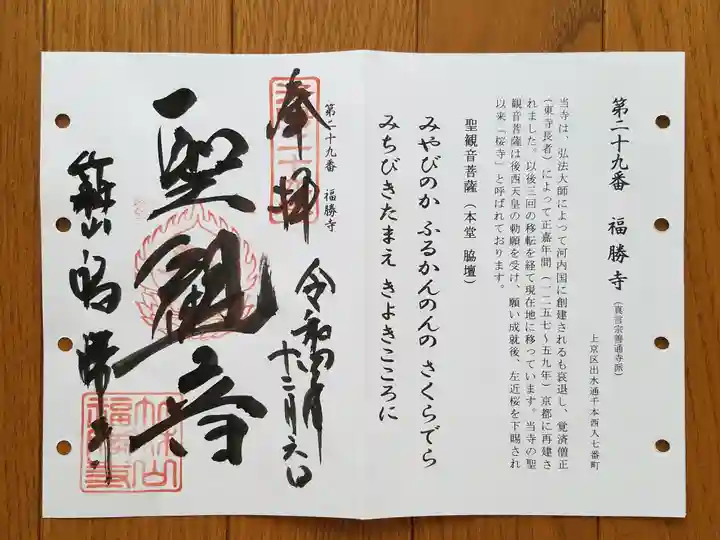 第二十九番　福勝寺（真言宗善通寺派）
上京区出水通千本西入七番町
当寺は、弘法大師によって河内国に創建されるも衰退し、覚済僧正
（東寺長者）によって正嘉年間（一二五七〜五九年）京都に再建さ
れました。以後三回の移転を経て現在地に移っています。当寺の聖
観音菩薩は後西天皇の勅願を受け、願い成就後、左近桜を下賜され
以来「桜寺」と呼ばれております。
聖観音菩薩（本堂　脇壇）
みやびのか ふるかんのんの さくらでら
みちびきたまえ きよきこころに
第二十九番　福勝寺
奉拝　令和四年十二月六日
聖観音
竹林山　福勝寺